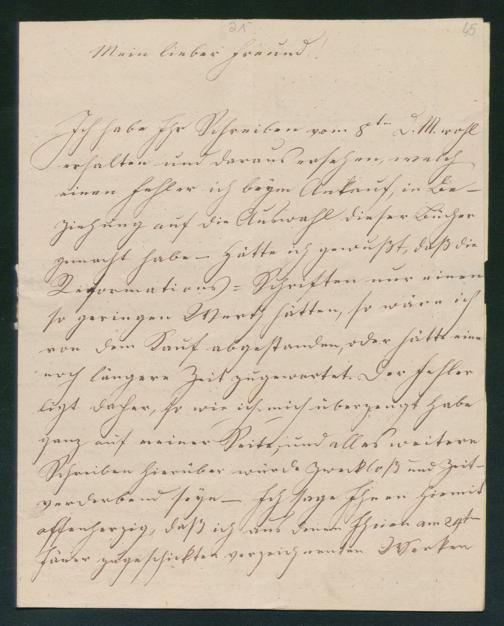 25
45
Mein lieber Freund!
Ich habe Ihr Schreiben vom 8ten d. M. wohl
erhalten und daraus ersehen, welch
einen Fehler ich beym Ankauf, in Be-
ziehung auf die Auswahl dieser Bücher
gemacht habe – Hätte ich gewußt, daß die
Reformations-Schriften nur einen
so geringen Werth hätten, so wäre ich
von dem Kauf abgestanden, oder hätte eine
noch längere Zeit zugewartet. Der Fehler
ligt daher, so wie ich mich überzeugt habe
ganz auf meiner Seite, und alles weitere
Schreiben hierüber würde zwecklos und Zeit-
verderbend seyn – Ich sage Ihnen hiemit
offenherzig, daß ich aus denen Ihnen am 29ten
Jäner zugeschickten verzeichneten Werken